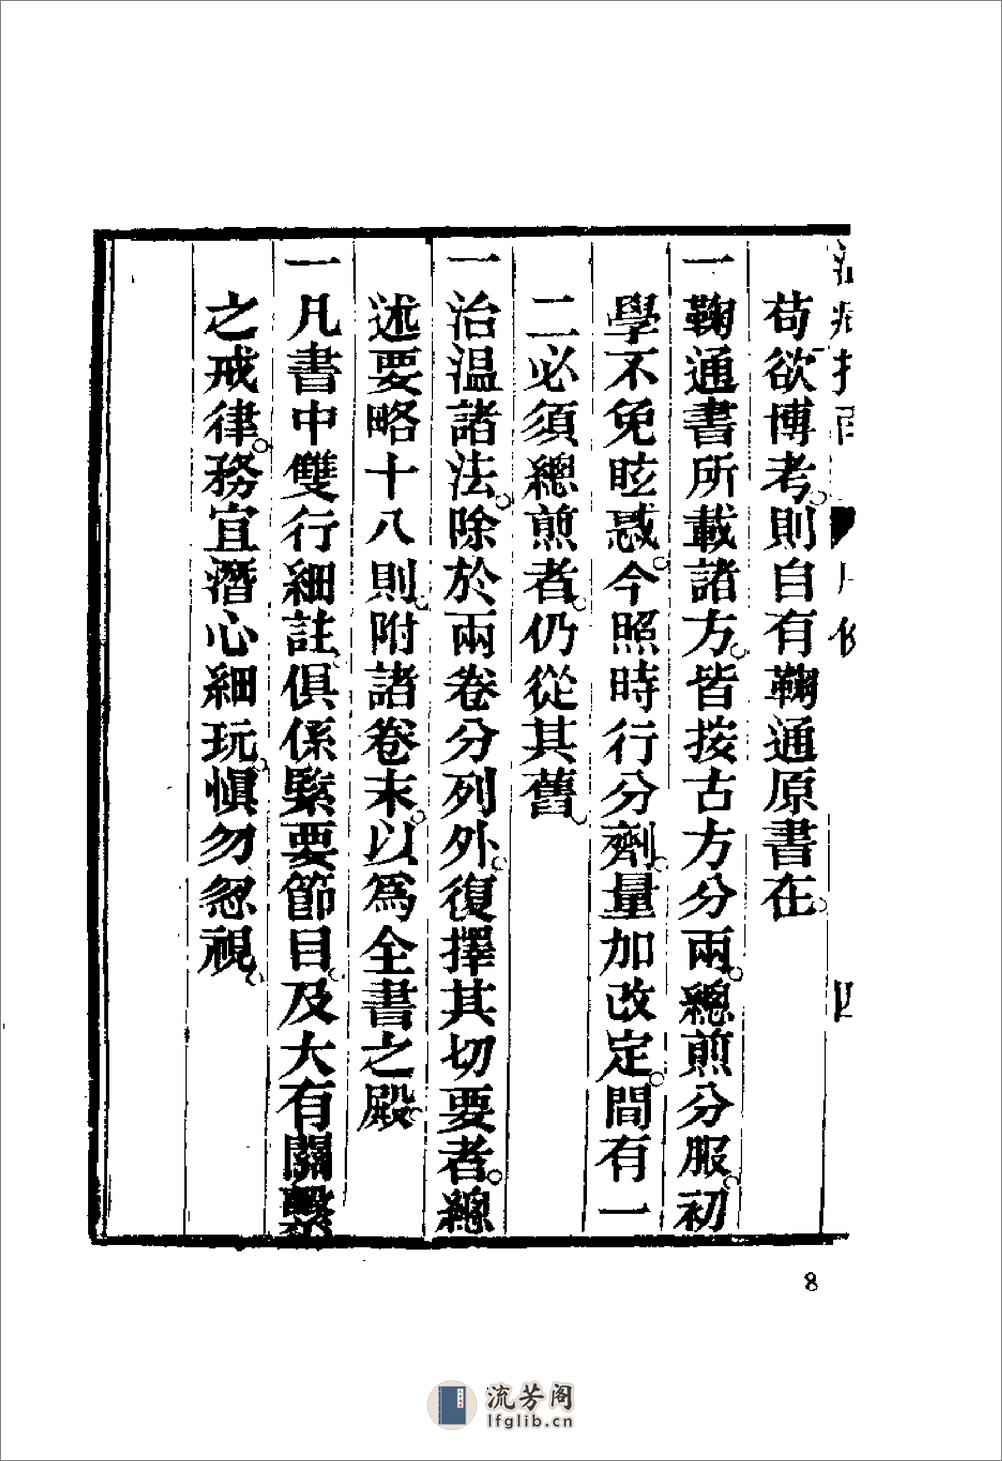 苟欲博考。則自有鞠通原書在。
一鞠通書所載諸方。皆按古方分兩。總煎分服。初
學不免眩惑。今照時行分劑。量加改定。間有一
二必須總煎者。仍從其舊。
一治溫諸法。除於兩卷分列外。復擇其切要者。總
述要略十八則。附諸卷末。以為全書之殿。
一凡書中雙行細註。俱係緊要節目。及大有關繫
之戒律。務宜潛心細玩。慎勿忽視。
8
流芳阁
lfglib.cn